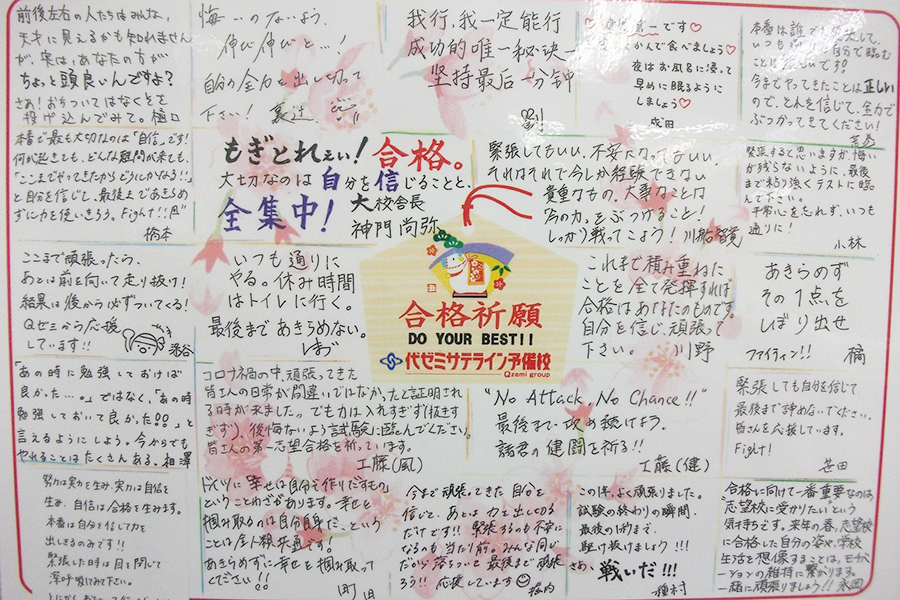 前後左右の人たちはみんな、
天才に見えるかも知れませんが
が、実は、あなたの方が
ちょっと頭良いんですよ?
さぁ!おちついてはなくそを
投げ込んでみて。樋口
悔いのないよう、
伸び伸びと…!
自分の全力を出し切って
下さい!
我行、我一定能行
成功的唯一秘诀—
坚持最后一分钟
かんで食べましょう♡
夜はお風呂に浸って
早めに眠るように
しましょう♡
成田
本番は誰でも
いつも
自分で臨む
こと
です!
今までやってきたことは正しい
ので、それを信じて、全力で
ぶつかってきてください!
本番で最も大切なのは「自信」です!
何が起きても、どんな難問が来ても、
「ここまでやってきたからどうにかなる!!」
と自分を信じて、最後まであきらめ
ずに力を使いきろう。Fight!!
橋本
もぎとれぇい!合格。
大切なのは自分を信じることと、
全集中!
大校舎長
神門尚弥
緊張してもいい、不安になってもいい、
それはそれで今しか経験できない
貴重なもの、大事なことは
今の力をぶつけること!
しっかり戦ってこよう!川船智寛
緊張すると思いますが、悔い
が残らないように、最後
まで粘り強くテストに臨
んで下さい。
平常心を忘れず、いつも
通りに!
小林
ここまで頑張ったら、
あとは前を向いて走り抜け!
結果は後から必ずついてくる!
Qゼミから応援
しています!!
澁谷
いつも通りに
やる。休み時間
はトイレに行く。
最後まであきらめない。
合格祈願
DO YOUR BEST!!
代ゼミサテライン予備校
Qzemi group
これまで積み重ねた
ことを全て発揮すれば
合格はあなたのものです。
自分を信じ、頑張って
下さい。 川野
あきらめず
その1点を
しぼり出せ
ファイティン!! 橘
「あの時に勉強しておけば
良かった…。」ではなく、「あの時
勉強しておいて良かった!!」と
言えるようにしよう。今からでも
やれることはたくさんある。相澤
コロナ禍の中、頑張ってきた
皆さんの日常が間違いではなかったと証明され
る時が来ました。でも力は入れすぎず(抜きす
ぎず)、後悔ないよう試験に臨んでください。
皆さんの第一志望合格を祈っています。
工藤(風)
"No Attack, No Chance!!"
最後まで攻め続けよう。
諸君の健闘を祈る!!
工藤(健)
緊張しても自分を信じて
最後まで諦めないでください。
皆さんを応援しています。
Fight!
笹田
努力は実力を生み、実力は自信を
生み、自信は合格を生みます。
本番は自分を信じて力を
出しきるのみです!!
緊張した時は目を閉じて
深呼吸してみて下さい。
ドイツに“幸せは自分で作りだすもの”
ということわざがあります。幸せを
掴み取るのは自分自身だ、という
ことは全人類共通です。
あきらめずに幸せを掴み取って
ください!!
町田
今まで頑張ってきた自分を
信じて、あとは力を出し切る
だけです!!緊張するのも不安に
なるのも当たり前。みんな同じ
だから落ちついて最後まで頑張
ろう!!応援しています
この1年、よく頑張りました。
試験の終わりの瞬間、
最後の1秒まで、
駆け抜けましょう!!!
さぁ、戦いだ!!!
種村
“合格に向けて一番重要なのは
“志望校に受かりたい”という
気持ちです。来年の春、志望校
に合格した自分の姿や、学校
生活を想像することは、モチベ
ーションの維持に繋がります。
一緒に頑張りましょう!!永田